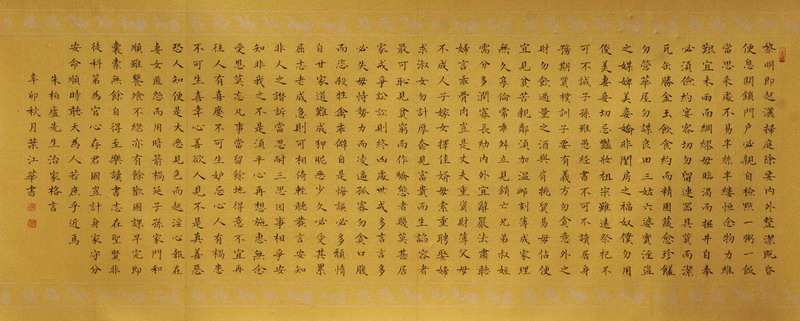 黎明即起灑掃庭除要内外整潔既昏
便息關鎖門户必親自檢點一粥一飯
當思來處不易半絲半縷恒念物力維
艱宜未雨而綢繆毋臨渴而掘井自奉
必須儉約宴客切勿留連器具質而潔
瓦缶勝金玉飲食約而精園蔬愈珍饈
勿營華屋勿謀良田三姑六婆實淫盗
之媒婢美妾嬌非閨房之福奴僕勿用
俊美妻妾切忌豔妝祖宗雖遠祭祀不
可不誠子孫雖愚經書不可不讀居身
務期質樸訓子要有義方勿貪意外之
財勿飲過量之酒與肩挑貿易毋佔便
宜見貧苦親鄰須加温卹刻薄成家理
無久享倫常乖舛立見銷亡兄弟叔姪
需分多潤寡長幼内外宜辭嚴法肅聽
婦言乖骨肉豈是丈夫重資財薄父母
不成人子嫁女擇佳婿毋索重聘娶婦
求淑女勿計厚奩見富貴而生諂容者
最可恥見貧窮而作驕態者賤莫甚居
家戒爭訟訟則終凶處世戒多言言多
必失毋恃勢力而凌逼孤寡勿貪口腹
而恣殺牲禽乖僻自是悔誤必多頽惰
自甘家道難成狎昵惡少久必受其累
屈志老成急則可相倚輕聽發言安知
非人之譖訴當忍耐三思因事相爭安
知非我之不是須平心再想施惠無念
受恩莫忘凡事當留餘地得意不宜再
往人有喜慶不可生妒忌心人有禍患
不可生喜幸心善欲人見不是真善惡
恐人知便是大惡見色而起淫心報在
妻女匿怨而用暗箭禍延子孫家門和
順雖饔飧不繼亦有餘歡國課早完即
囊橐無餘自得至樂讀書志在聖賢非
徒科第為官心存君國豈計身家守分
安命順時聽天為人若此庶乎近焉
朱柏廬先生治家格言
辛卯秋月葉江華書